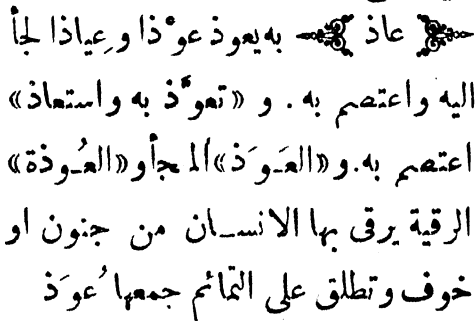 ﴿ عاذ ﴾ به يعوذ عوْذا وعِياذا لجأ
اليه واعتصم به . و «تعوَّذ به واستعاذ»
اعتصم به . و «العَوَذ» الملجأ و «العُوذة»
الرقية يرقى بها الانسان من جنون او
خوف وتطلق على التمائم جمعها عُوَذ